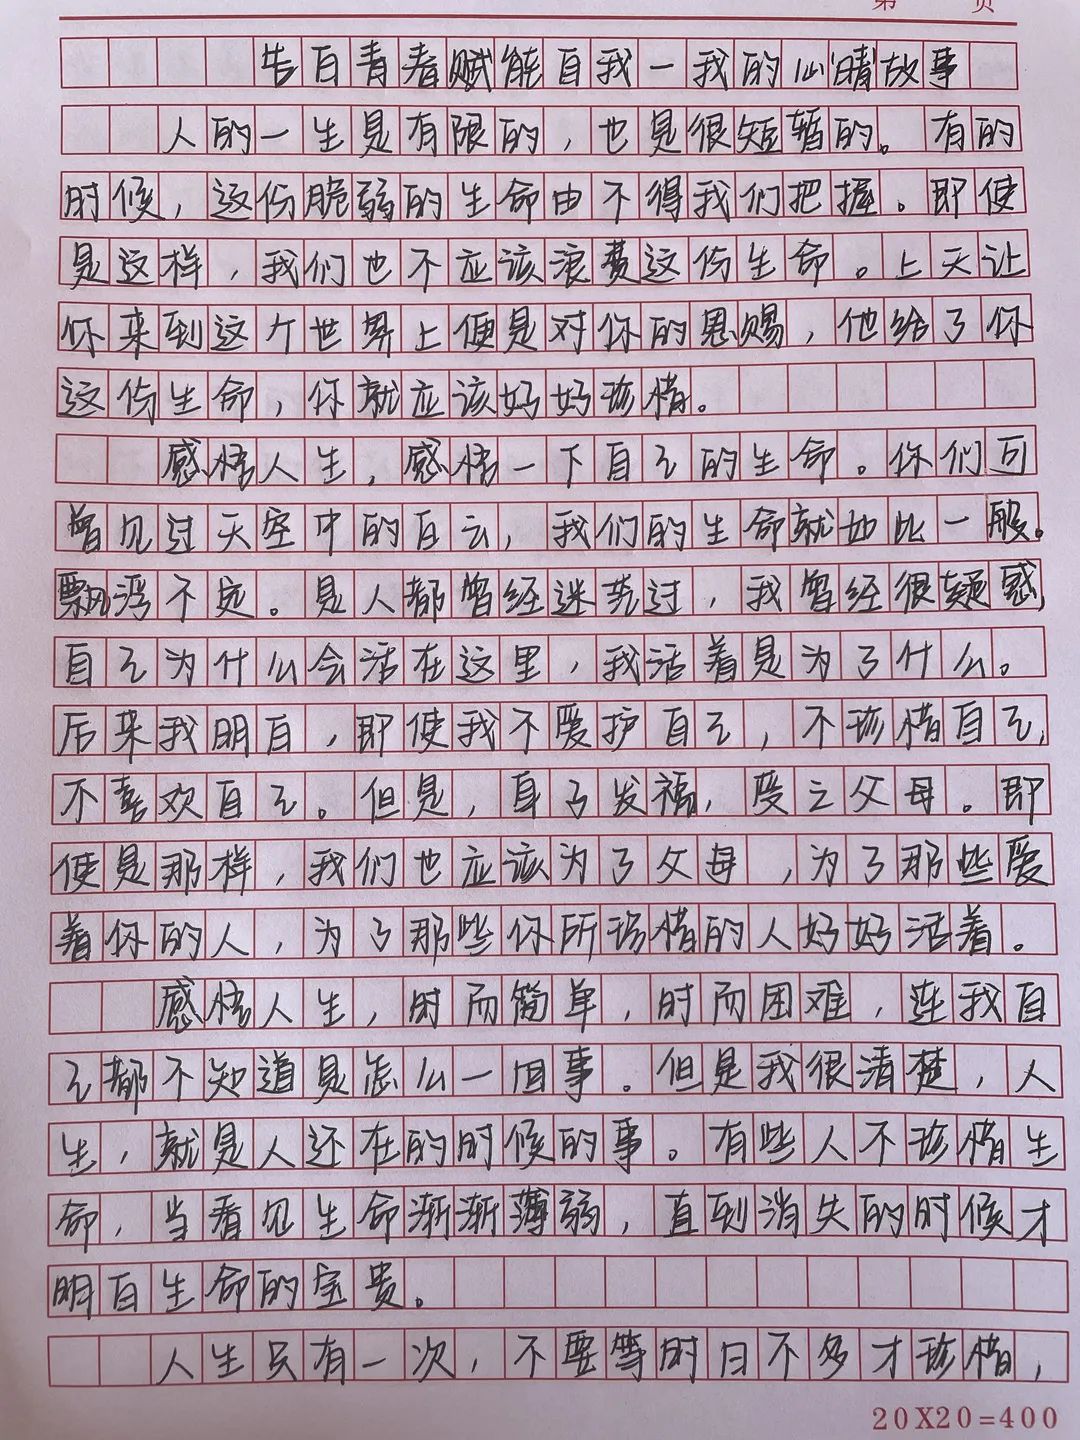 第 页
告白青春赋能自我一我的心晴故事
人的一生是有限的，也是很短暂的。有的
时候，这份脆弱的生命由不得我们把握。即使
是这样，我们也不应该浪费这份生命。上天让
你来到这个世界上便是对你的恩赐，他给了你
这份生命，你就应该好好珍惜。
感悟人生，感悟一下自己的生命。你们可
曾见过天空中的白云，我们的生命就如此一般。
飘浮不定。是人都曾经迷茫过，我曾经很疑惑，
自己为什么会活在这里，我活着是为了什么。
后来我明白，即使我不爱护自己，不珍惜自己，
不喜欢自己。但是，身子发福，受之父母。即
使是那样，我们也应该为了父母，为了那些爱
着你的人，为了那些你所珍惜的人好好活着。
感悟人生，时而简单，时而困难，连我自
己都不知道是怎么一回事。但是我很清楚，人
生，就是人还在的时候的事。有些人不珍惜生
命，当看见生命渐渐薄弱，直到消失的时候才
明白生命的宝贵。
人生只有一次，不要等时日不多才珍惜，
20X20=400